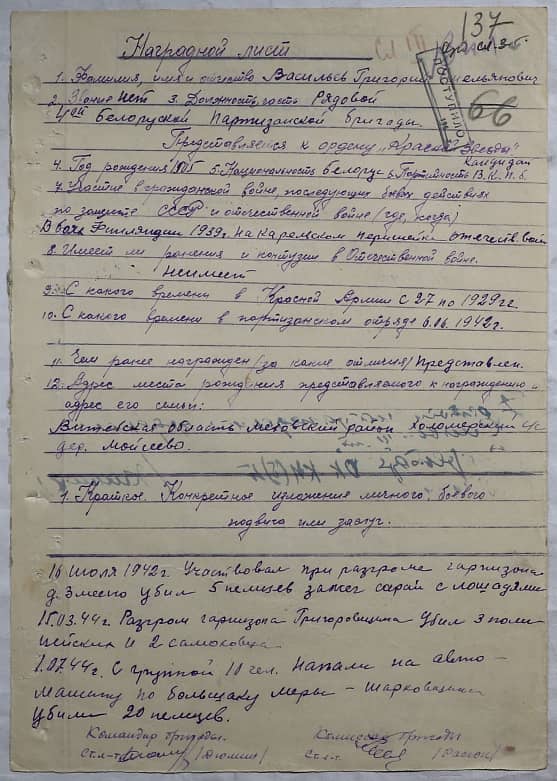 137
Наградной лист
1. Фамилия, имя и отчество Васильев Григорий Емельянович
2. Звание нет 3. Должность, часть Рядовой
Белоруской Партизанской бригады.
66
Представляется к ордену „Красная Звезда"
Кандидат
4. Год рождения 1905 5. Национальность белорус 6. Партийность В.К.П.б.
7. Участие в гражданской войне, последующих боевых действиях
по защите СССР и отечественной войне (где, когда)
В боях Финляндии 1939 г. на Карельском перешейки отечеств. вой
8. Имеет ли ранения и контузии в Отечественной войне.
Неимеет
9. С какого времени в Красной Армии с 27 по 1929 гг.
10. С какого времени в партизанском отряде 6.06.1942 г.
11. Чем ранее награжден /за какие отличия/ Представлен.
12. Адрес места рождения представляемого к награждению и
адрес его семьи:
Витебская область Меховский район Холомерский с/с
дер. Мойсеево.
1. Краткое. Конкретное изложение личного боевого
подвига или заслуг.
16 июля 1942 г. Участвовал при разгроме гарнизона
д. Змеево убил 5 немцев зажег сарай с лошадями
15.03.44 г. Разгром гарнизона Григоровщина убил 3 поли
цейских и 2 самоховца.
1.07.44 г. С группой 10 чел. напали на авто-
машину по большаку Меры - Шарковщина
Убили 20 немцев.
Командир бригады. Комиссар бригады
Ст. л-т /Дюмин/ Ст. л-т